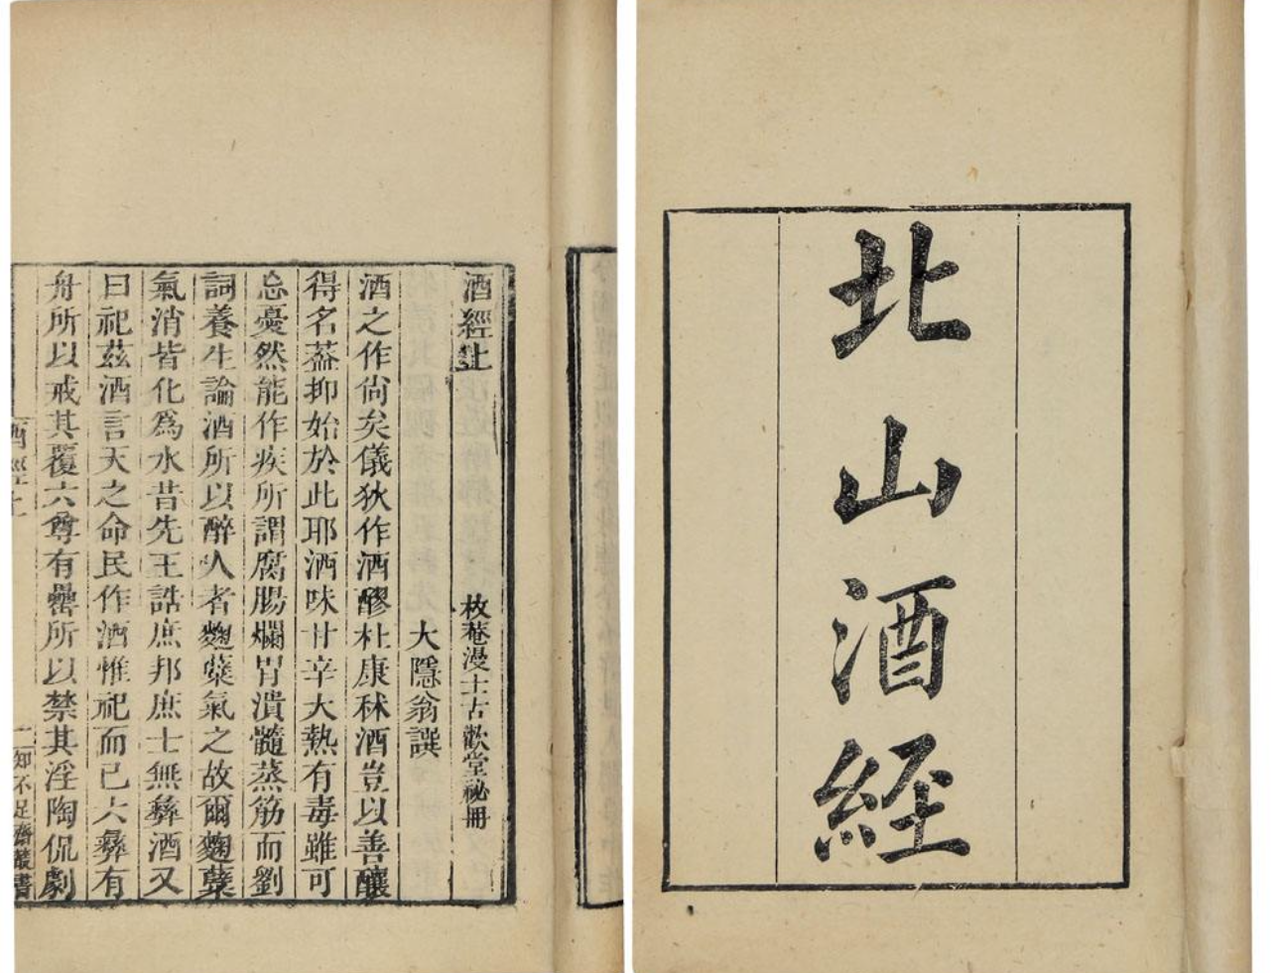 北山酒經
酒經上
枚菴漫士古歡堂祕冊
大隱翁譔
酒之作尙矣儀狄作酒醪杜康秫酒豈以善釀
得名葢抑始於此耶酒味甘辛大熱有毒雖可
忘憂然能作疾所謂腐腸爛胃潰髓蒸筋而劉
詞養生論酒所以醉人者麴蘗氣之故爾麴蘗
氣消皆化爲水昔先王誥庶邦庶士無彝酒又
曰祀茲酒言天之命民作酒惟祀而已六彝有
舟所以戒其覆六尊有罍所以禁其淫陶侃劇
酒經上
一
知不足齋叢書